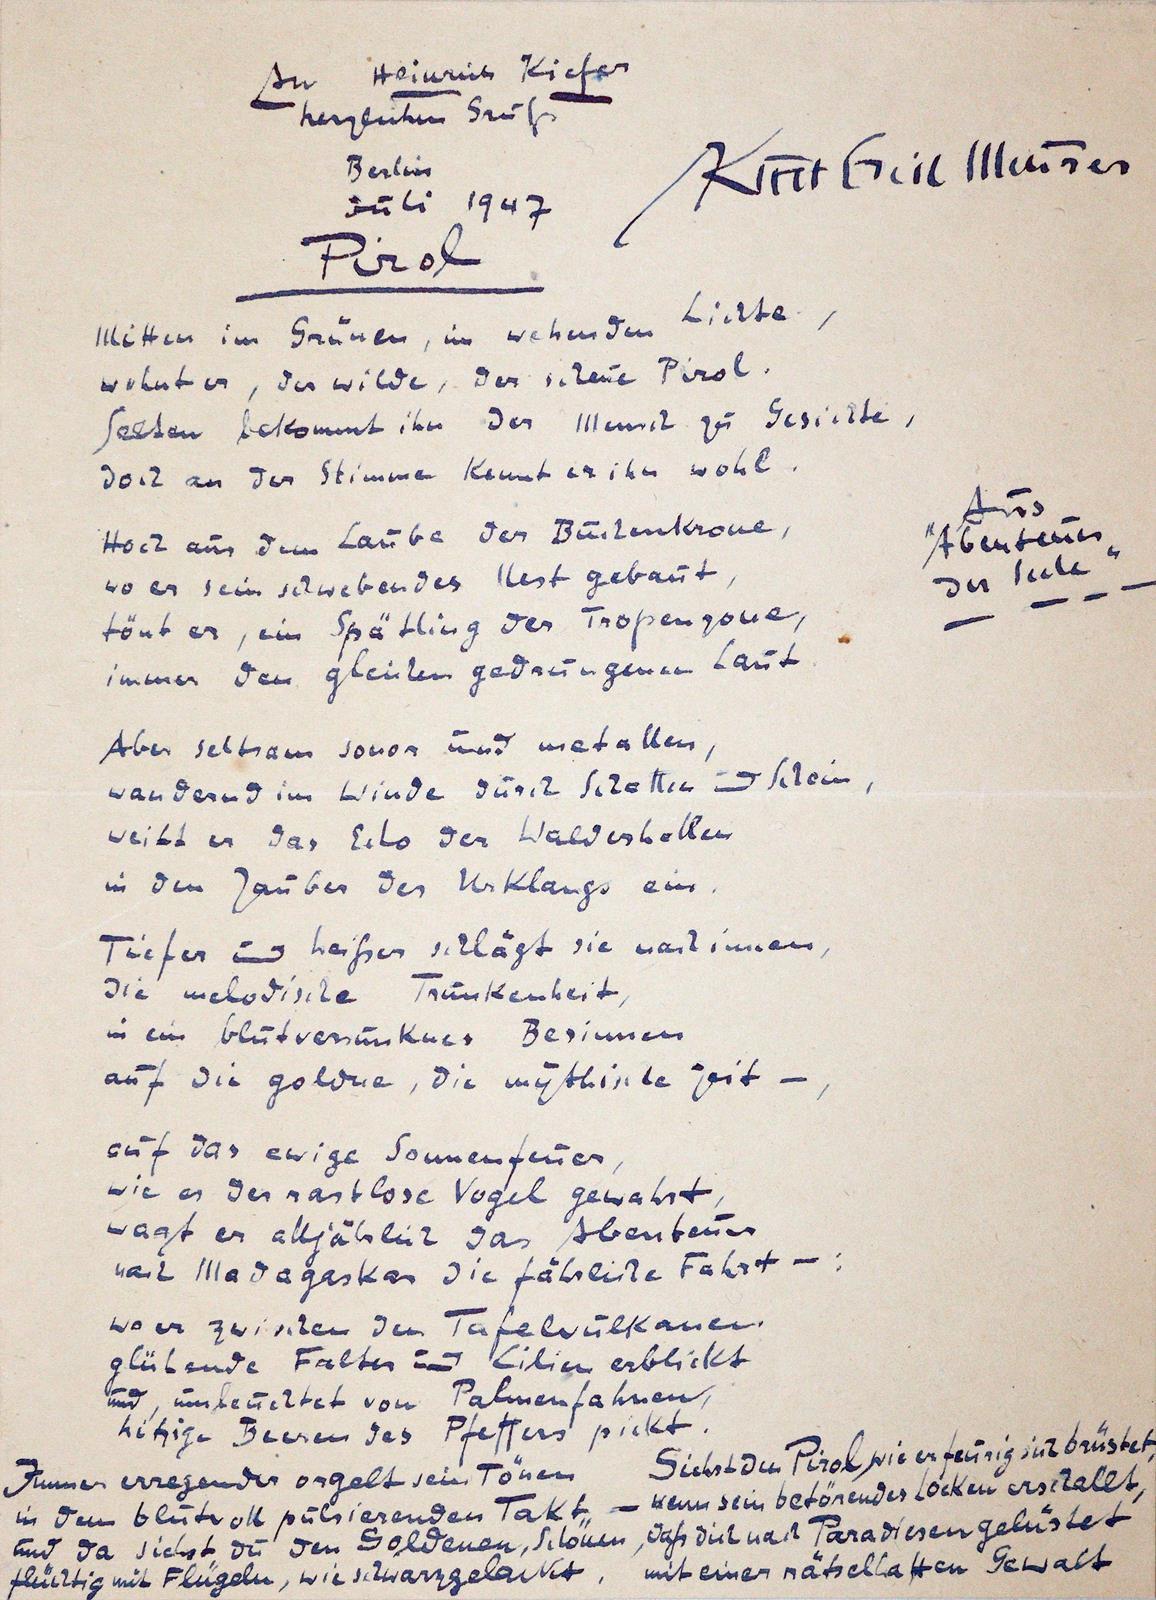 An Heinrich Kiefer
herzlichen Gruß
Berlin
Juli 1947
Kurt Erich Meurer
Pirol
Mitten im Grünen, im wehenden Lichte,
wohnt er, der wilde, der scheue Pirol.
Selten bekommt ihn der Mensch zu Gesichte,
doch an der Stimme kennt er ihn wohl.
Hoch aus dem Laube der Buchenkrone,
wo er sein schwebendes Nest gebaut,
tönt er, ein Spätling der Tropenzone,
immer den gleichen gedrungenen Laut.
Aus
"Abenteuer
der Seele"
Aber seltsam sonor und metallen,
wandernd im Winde durch Schatten und Schein,
weiht er das Echo der Waldeshallen
in den Zauber des Urklangs ein.
Tiefer und heißer schlägt sie nach innen,
die melodische Trunkenheit,
in ein blutversunknes Besinnen
auf die goldne, die mythische Zeit –,
auf das ewige Sonnenfeuer,
wie es der rastlose Vogel gewahrt,
wagt er alljährlich das Abenteuer
nach Madagaskar die fährliche Fahrt – :
wo er zwischen den Tafelvulkanen
glühende Falter und Lilien erblickt
und, umleuchtet von Palmenfahnen,
hitzige Beeren des Pfeffers pickt.
Immer erregender orgelt sein Tönen
in dem blutvoll pulsierenden Takt, –
und da siehst du den Goldenen, Schönen,
flüchtig mit Flügeln, wie schwarzgelackt.
Siehst den Pirol, wie er feurig sich brüstet,
wenn sein betörendes Locken erschallt,
daß dich nach Paradiesen gelüstet
mit einer rätselhaften Gewalt